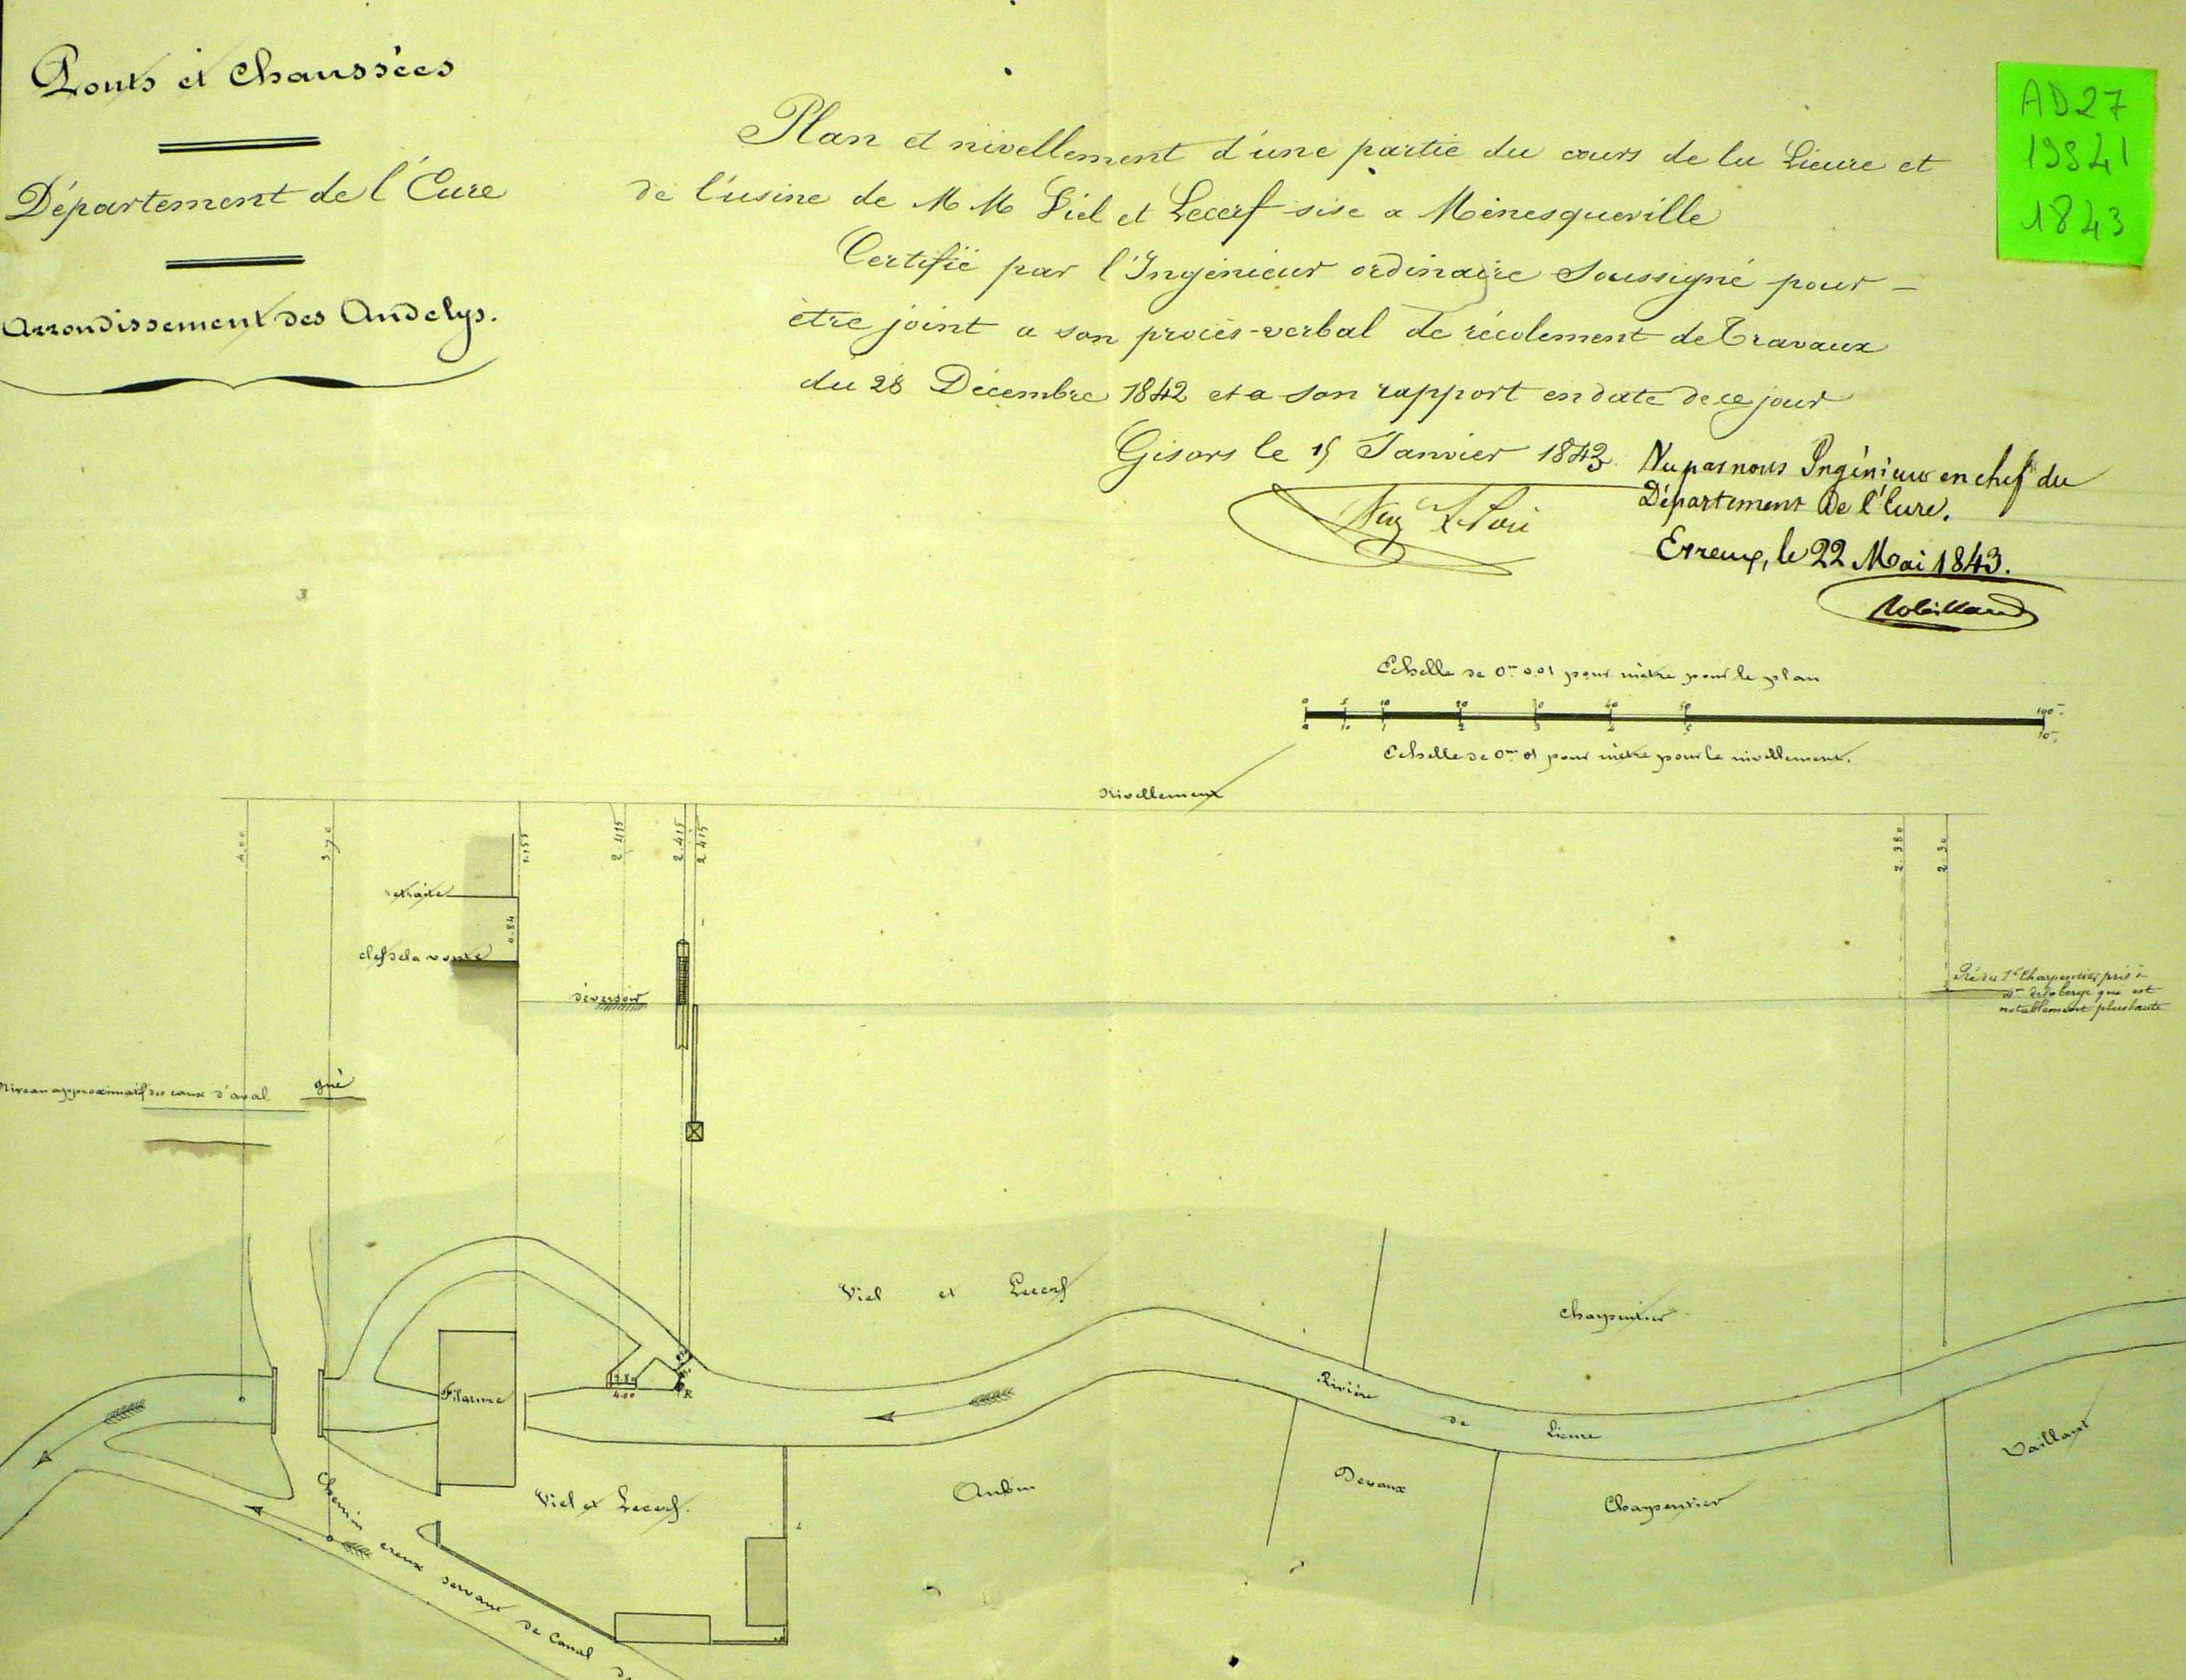 Ponts et Chaussées
Département de l'Eure
Arrondissement des Andelys.
AD27
19841
1843
Plan et nivellement d'une partie du cours de la Lieure et
de l'usine de M M Viel et Lecerf sise a Ménesqueville
Certifié par l'Ingénieur ordinaire Soussigné pour
être joint a son procès-verbal de récolement de Travaux
du 28 Décembre 1842 et a son rapport en date de ce jour
Gisors le 15 Janvier 1843.
Vu par nous Ingénieur en chef du
Département de l'Eure.
Evreux, le 22 Mai 1843.
Robillard
Echelle de 0m 001 pour mètre pour le plan
0 5 10 20 30 40 50 100m
10m
Echelle de 0m 01 pour mètre pour le nivellement.
Nivellement
4.00
3.70
1.155
2.415
2.415
2.415
2.380
2.30
retraite
0.84
clef de la voute
déversoir
Pré du Sr Charpentier pris à
4m de la berge qui est
notablement plus haute
Niveau approximatif des eaux d'aval.
gué
Viel et Lecerf
Charpentier
Filature
4.00
R
Rivière de Lieure
Vaillant
Viel et Lecerf.
Aubin
Devaux
Charpentier
Chemin creux servant de Canal de